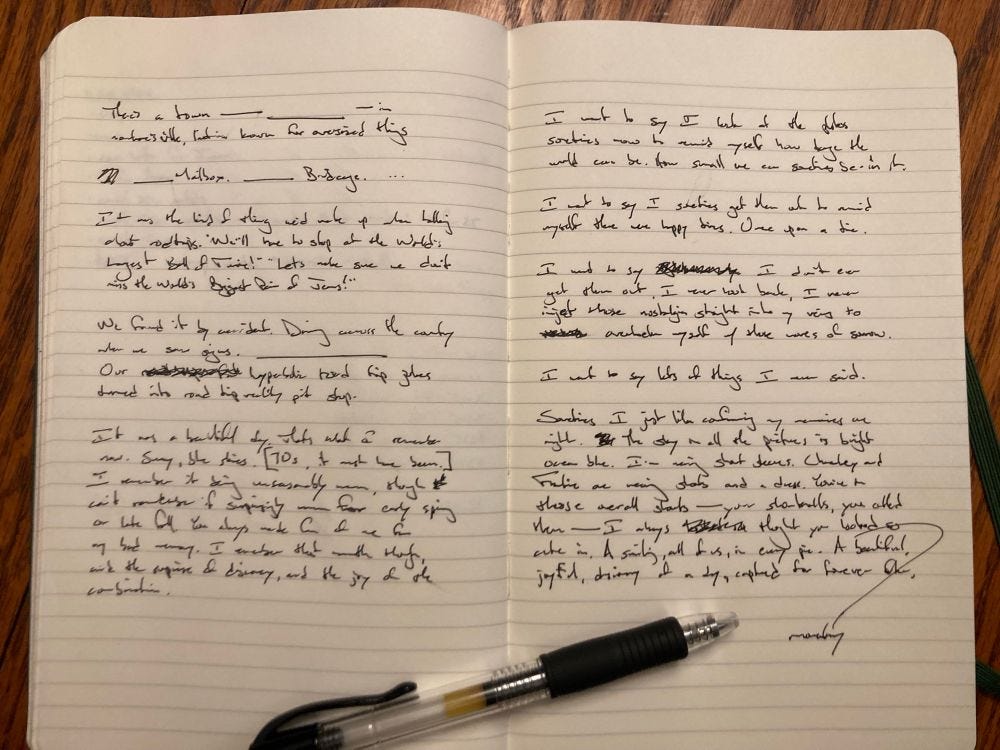 There's a town ——— ——— — in
known for oversized things
——— Mailbox. ——— Birdcage. ...
It was the kind of thing we'd make up when talking
about roadtrips. "We'll have to stop at the World's
Largest Ball of Twine!" "Let's make sure we don't
miss the World's Biggest Pair of Jeans!"
We found it by accident. Driving across the country
when we saw signs. ———
Our hypothetical road trip jokes
turned into road trip reality pit stop.
It was a beautiful day, that's what I remember
now. Sunny, blue skies. [70s, it must have been.]
I remember it being unseasonably warm, though
can't remember if surprisingly warm for early spring
or late fall. You always made fun of me for
my bad memory. I remember that warmth though,
and the surprise of discovery, and the joy of the
combination.
I want to say I look at the photos
sometimes now to remind myself how large the
world can be. How small we can sometimes be in it.
I want to say I sometimes get them out to remind
myself there were happy times. Once upon a time.
I want to say I don't ever
get them out, I never look back, I never
inject those nostalgia straight into my veins to
overwhelm myself of those waves of sorrow.
I want to say lots of things I never said.
Sometimes I just like confirming my memories are
right. The sky in all the pictures is bright
ocean blue. I'm wearing short sleeves. Charley and
Frankie are wearing shorts and a dress. You're in
those overall shorts — your shortalls, you called
them — I always thought you looked so
cute in. A smiling, all of us, in every pic. A beautiful,
joyful, of a day, captured for forever